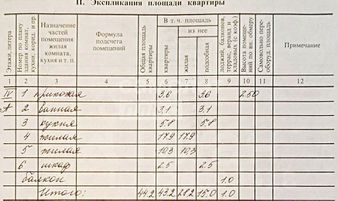 II. Экспликация площади квартиры
Этажи, литера
Назначение части помещения: жилая комната, кухня и т. п.
Формула подсчета помещений
Общая площадь квартиры
В т. ч. площадь
из нее
квартиры
жилая
подсобная
Примечание
1 2 3 4 5 6 7 8 9 10 11 12
IV 1 прихожая 3,6 3,6 2.50
А 2 ванная 3,1 3,1
3 кухня 5,8 5,8
4 жилая 17,9 17,9
5 жилая 10,3 10,3
6 шкаф 2,5 2,5
балкон 1.0
Итого: 44,2 43,2 28,2 15,0 1.0